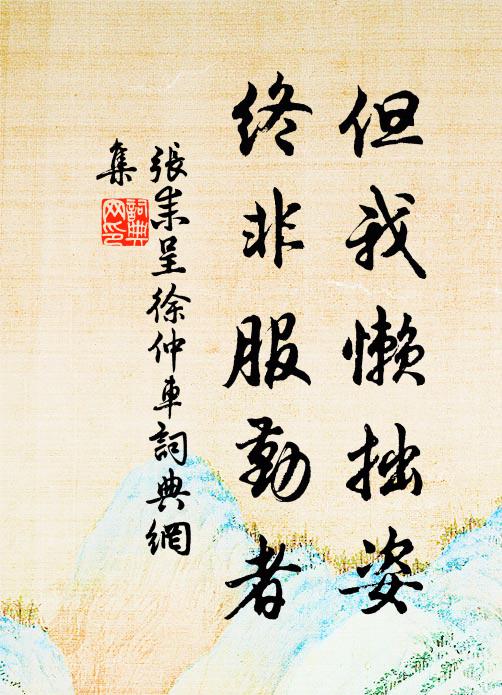 但我懒拙姿
终非服勤者
張耒呈徐仲車詞典網
集
詞典
网印